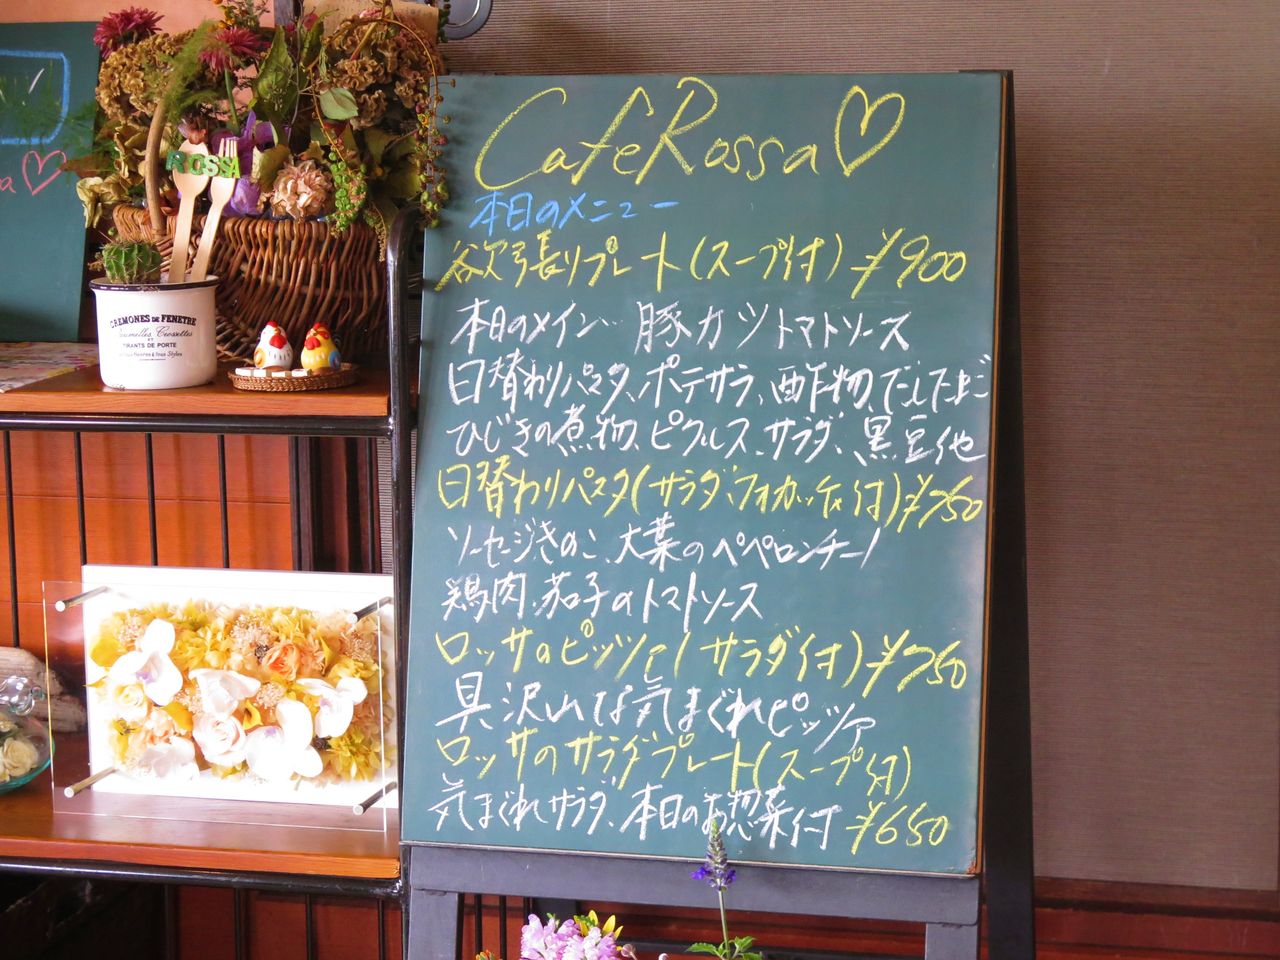 Cafe Rossa♡
本日のメニュー
欲張りプレート(スープ付) ¥900
本日のメイン 豚カツトマトソース
日替わりパスタ、ポテサラ、酢物、だし
ひじきの煮物、ピクルス、サラダ、黒豆他
日替わりパスタ(サラダ、フォカッチャ付) ¥750
ソーセージきのこ、大葉のペペロンチーノ
鶏肉、茄子のトマトソース
ロッサのピッツァ(サラダ付) ¥750
具沢山な気まぐれピッツァ
ロッサのサラダプレート(スープ付)
気まぐれサラダ、本日のお惣菜付 ¥650
ROSSA
CREMONES DE FENETRE
Jumelles Crossettes
ET
TIRANTS DE PORTE